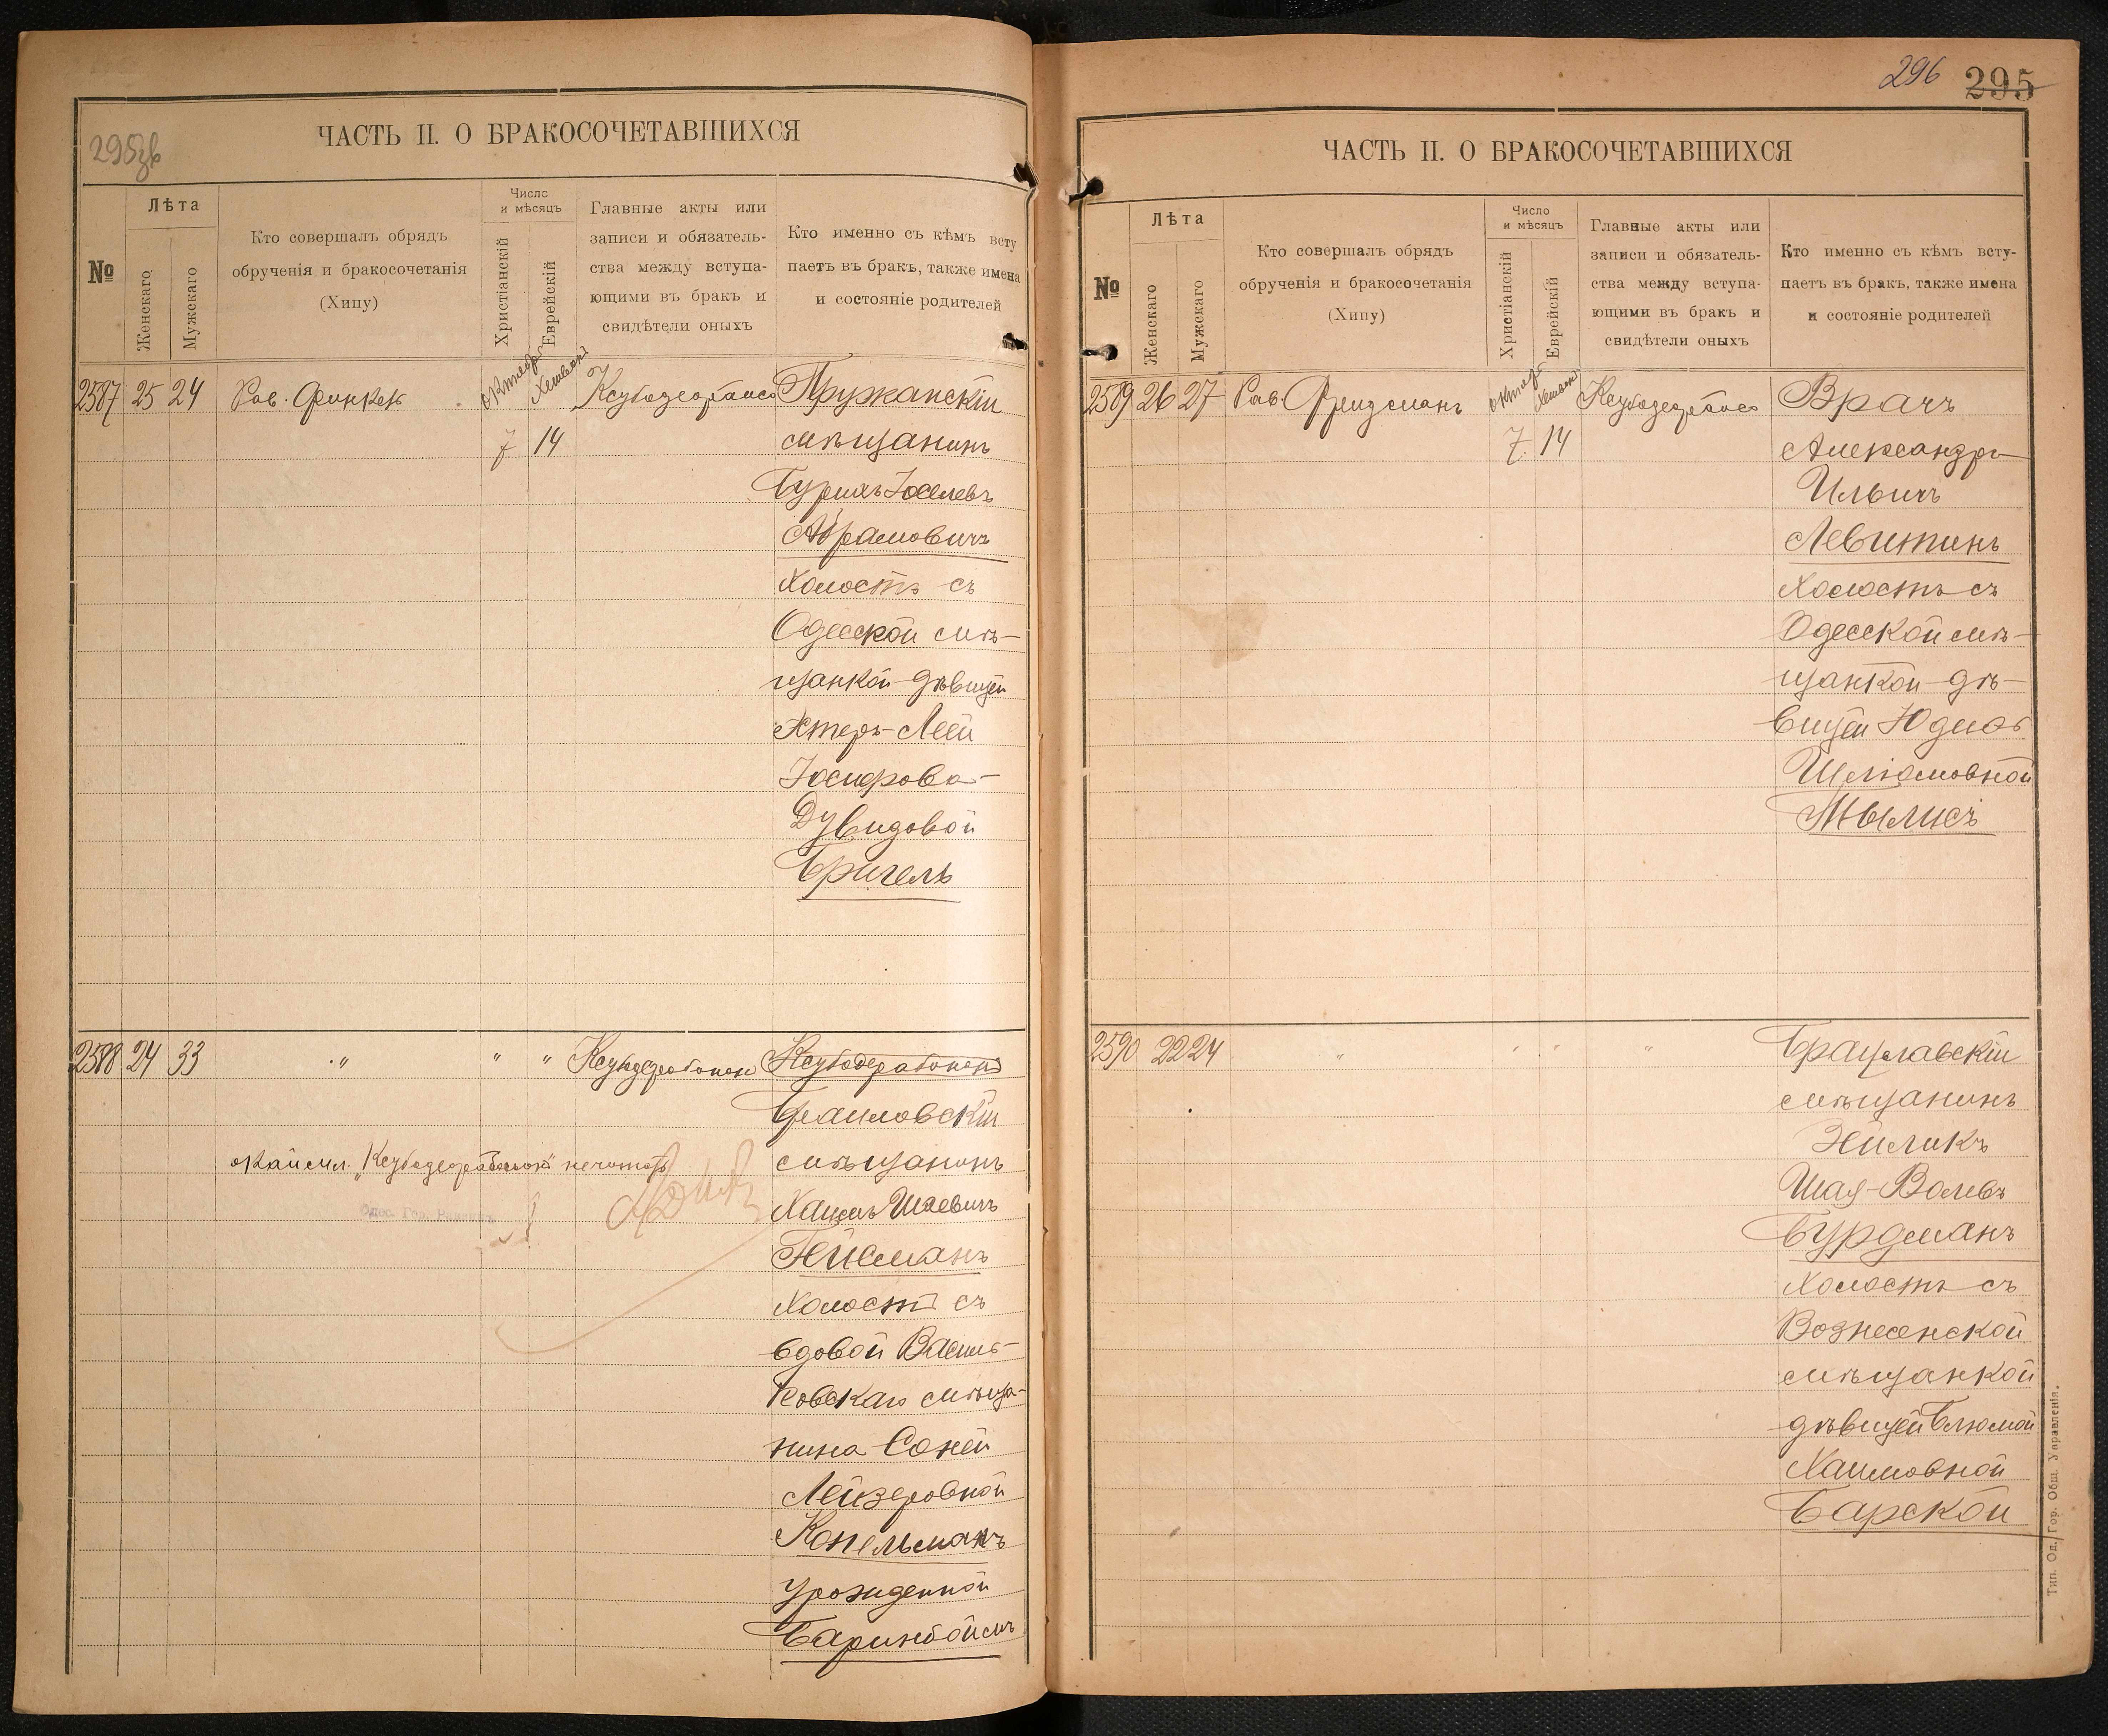 295зв
ЧАСТЬ II. О БРАКОСОЧЕТАВШИХСЯ
№
Лѣта
Женскаго
Мужскаго
Кто совершалъ обрядъ
обрученія и бракосочетанія
(Хипу)
Число
и мѣсяцъ
Христіанскій
Еврейскій
Главные акты или
записи и обязатель-
ства между вступа-
ющими въ бракъ и
свидѣтели оныхъ
Кто именно съ кѣмъ всту
паетъ въ бракъ, также имена
и состояніе родителей
2587 25 24 Рав. Финкель Октябр Хешван Ксубодеорайсо Пружанскій
7 14 мѣщанинъ
Бурихъ Іоселевъ
Абрамовичъ
Холостъ съ
Одесской мѣ-
щанкой дѣвицей
Эстеръ-Леей
Іосифова-
Дувидовой
Бригель
2588 24 33 " " " Ксубодерабонон Ксубодерабонон
Браиловскій
мѣщанинъ
Хаимъ Шаевичъ
Гейсманъ
Холостъ съ
вдовой Василь-
ковскаго мѣща-
нина Соней
Лейзеровной
Копельманъ
урожденной
Баринбоймъ
Одес. Гор. Раввинъ
296 295
ЧАСТЬ II. О БРАКОСОЧЕТАВШИХСЯ
№
Лѣта
Женскаго
Мужскаго
Кто совершалъ обрядъ
обрученія и бракосочетанія
(Хипу)
Число
и мѣсяцъ
Христіанскій
Еврейскій
Главные акты или
записи и обязатель-
ства между вступа-
ющими въ бракъ и
свидѣтели оныхъ
Кто именно съ кѣмъ всту-
паетъ въ бракъ, также имена
и состояніе родителей
2589 26 27 Рав. Фридманъ Октяб Хешван Ксубодеорайсо Врачъ
7 14 Александръ
Ильичъ
Левитинъ
Холостъ съ
Одесской мѣ-
щанкой дѣ-
вицей Юдись
Шлiомовной
Мылисъ
2590 22 24 " " " " Брацлавскій
мѣщанинъ
Зейликъ
Шая-Волевъ
Бурдманъ
Холостъ съ
Вознесенской
мѣщанкой
дѣвицей Блюмой
Хаимовной
Барской
Тип. Од. Гор. Общ. Управленія.